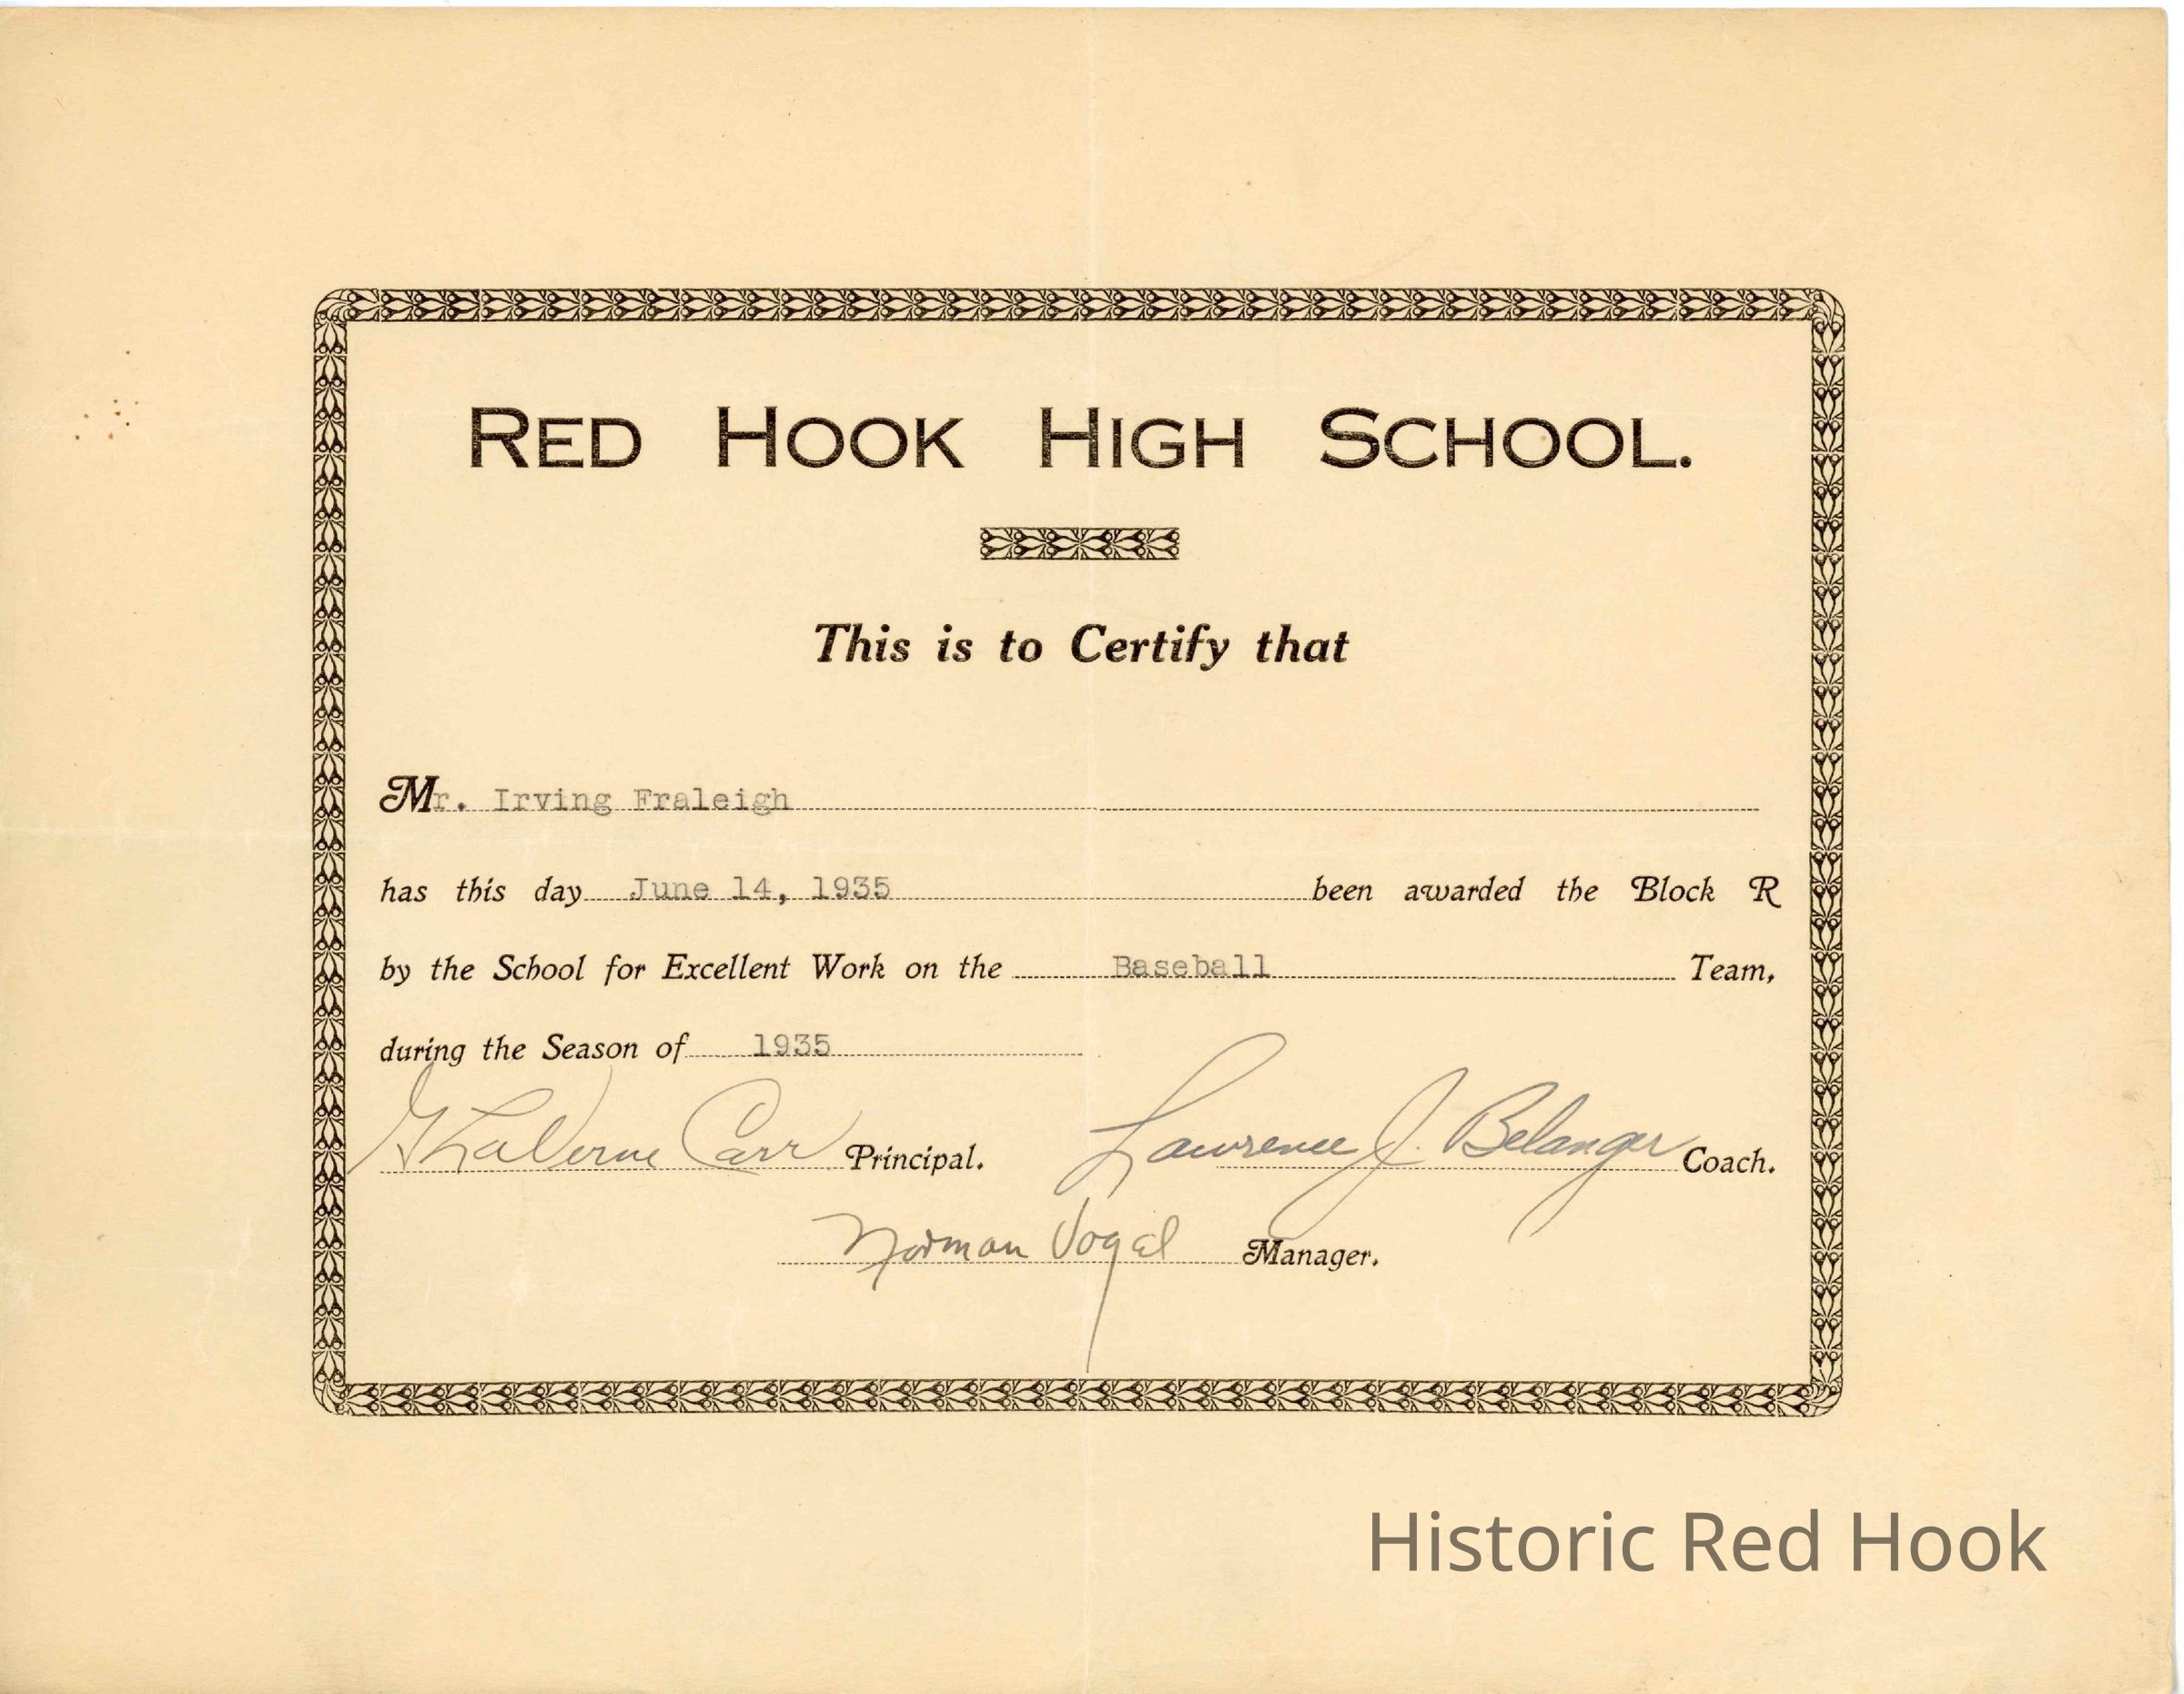 RED HOOK HIGH SCHOOL.
This is to Certify that
Mr. Irving Fraleigh
has this day June 14, 1935 been awarded the Block R
by the School for Excellent Work on the Baseball Team,
during the Season of 1935
LaVerne Carr Principal. Lawrence J. Belanger Coach.
Norman Vogel Manager.
Historic Red Hook